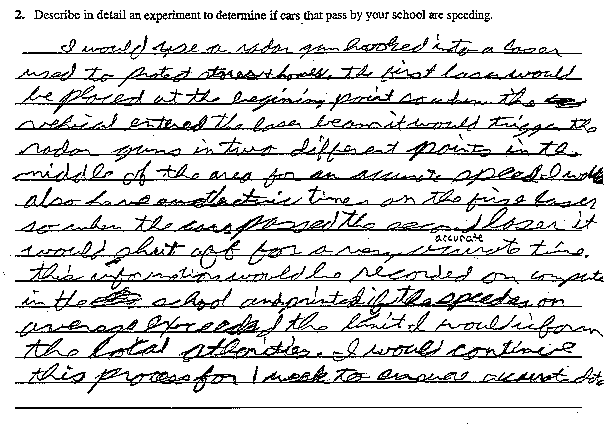 2. Describe in detail an experiment to determine if cars that pass by your school are speeding.
I would use a radar gun hooked into a laser
used to protect stores + homes. The first laser would
be placed at the begining point so when the
vechical entered the laser beam it would trigger the
radar guns in two different points in the
middle of the area for an accurate speed. I would
also have an electric timer on the first laser
so when the cars passed the second laser it
would shut off for a very accurate time.
this information would be recorded on compute
in the school and printed if the speeds on
average exceeded the limit I would inform
the local athorities. I would continue
this process for 1 week to ensure accurate data